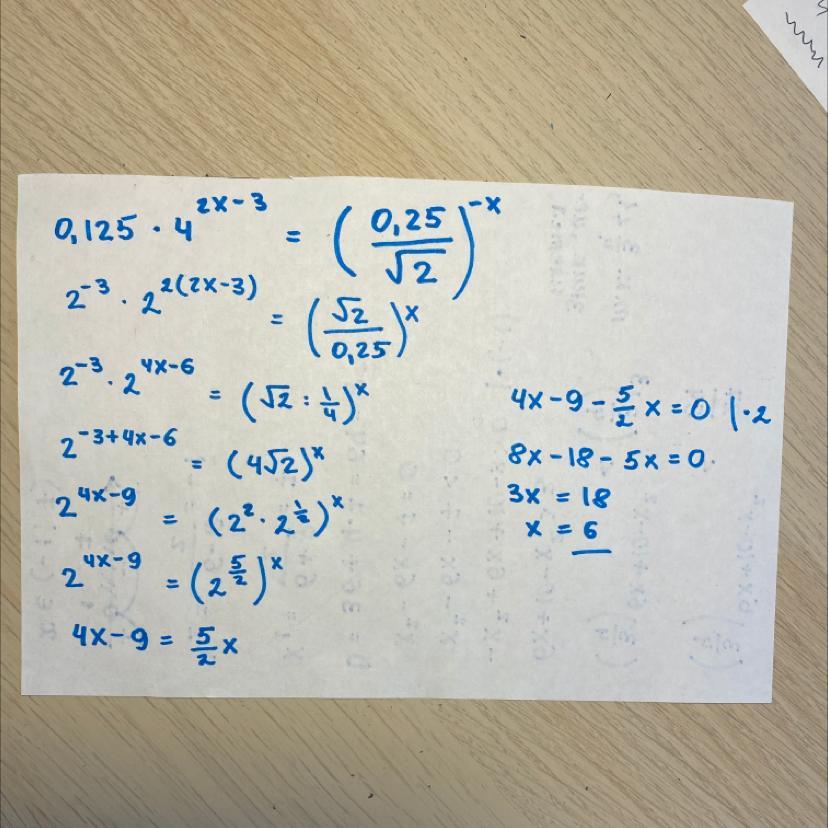 0,125 · 4^(2x-3) = (0,25/√2)^(-x)
2^(-3) · 2^(2(2x-3)) = (√2/0,25)^x
2^(-3) · 2^(4x-6) = (√2 : 1/4)^x
2^(-3+4x-6) = (4√2)^x
2^(4x-9) = (2^2 · 2^(1/2))^x
2^(4x-9) = (2^(5/2))^x
4x-9 = 5/2 x
4x-9 - 5/2 x = 0 | · 2
8x-18-5x=0
3x = 18
x = 6